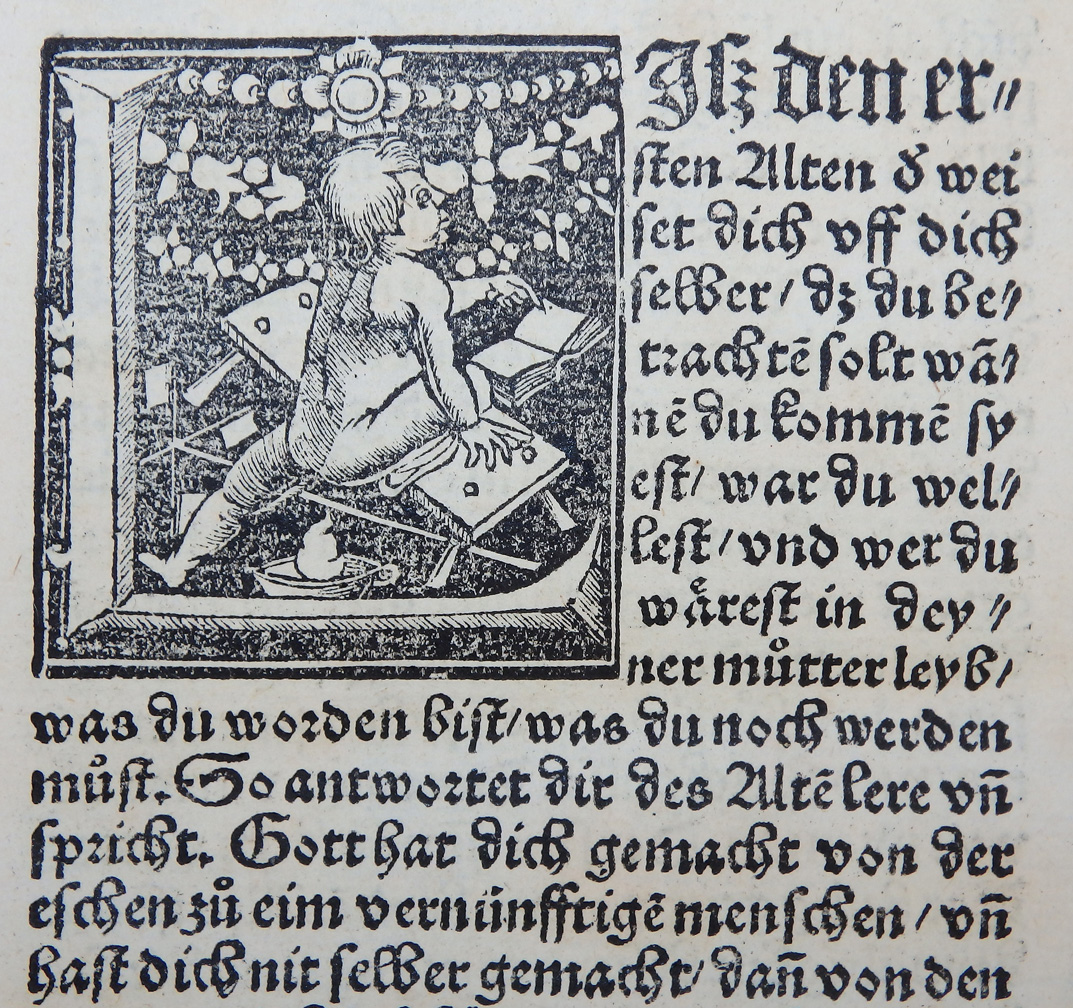 LJſz den er⸗
ſten Alten d̕ wei
ſet dich vff dich
ſelber / dz du be⸗
trachtē ſolt wā⸗
nē du kommē ſy
eſt / war du wel⸗
leſt / vnd wer du
wåreſt in dey⸗
ner můtter leyb /
was du worden biſt / was du noch werden
můſt. So antwortet dir des Altē lere vn̄
ſpricht. Gott hat dich gemacht von der
eſchen zů eim vernünfftigē menſchen / vn̄
haſt dich nit ſelber gemacht / dan̄ von den